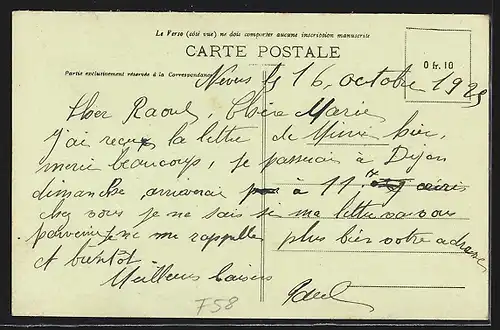 Le Verso (côté vue) ne doit comporter aucune inscription manuscrite
CARTE POSTALE
0 fr. 10
Partie exclusivement réservée à la Correspondance
16 octobre 192
Cher Raoul, Chère Marie
J'ai reçu la lettre de Mimi hier,
merci beaucoup, je passerai à Dijon
dimanche, arriverai à 11
chez vous je ne sais si ma lettre va vous
parvenir, je ne me rappelle plus bien votre adresse
et bientôt.
Meilleurs baisers
F58